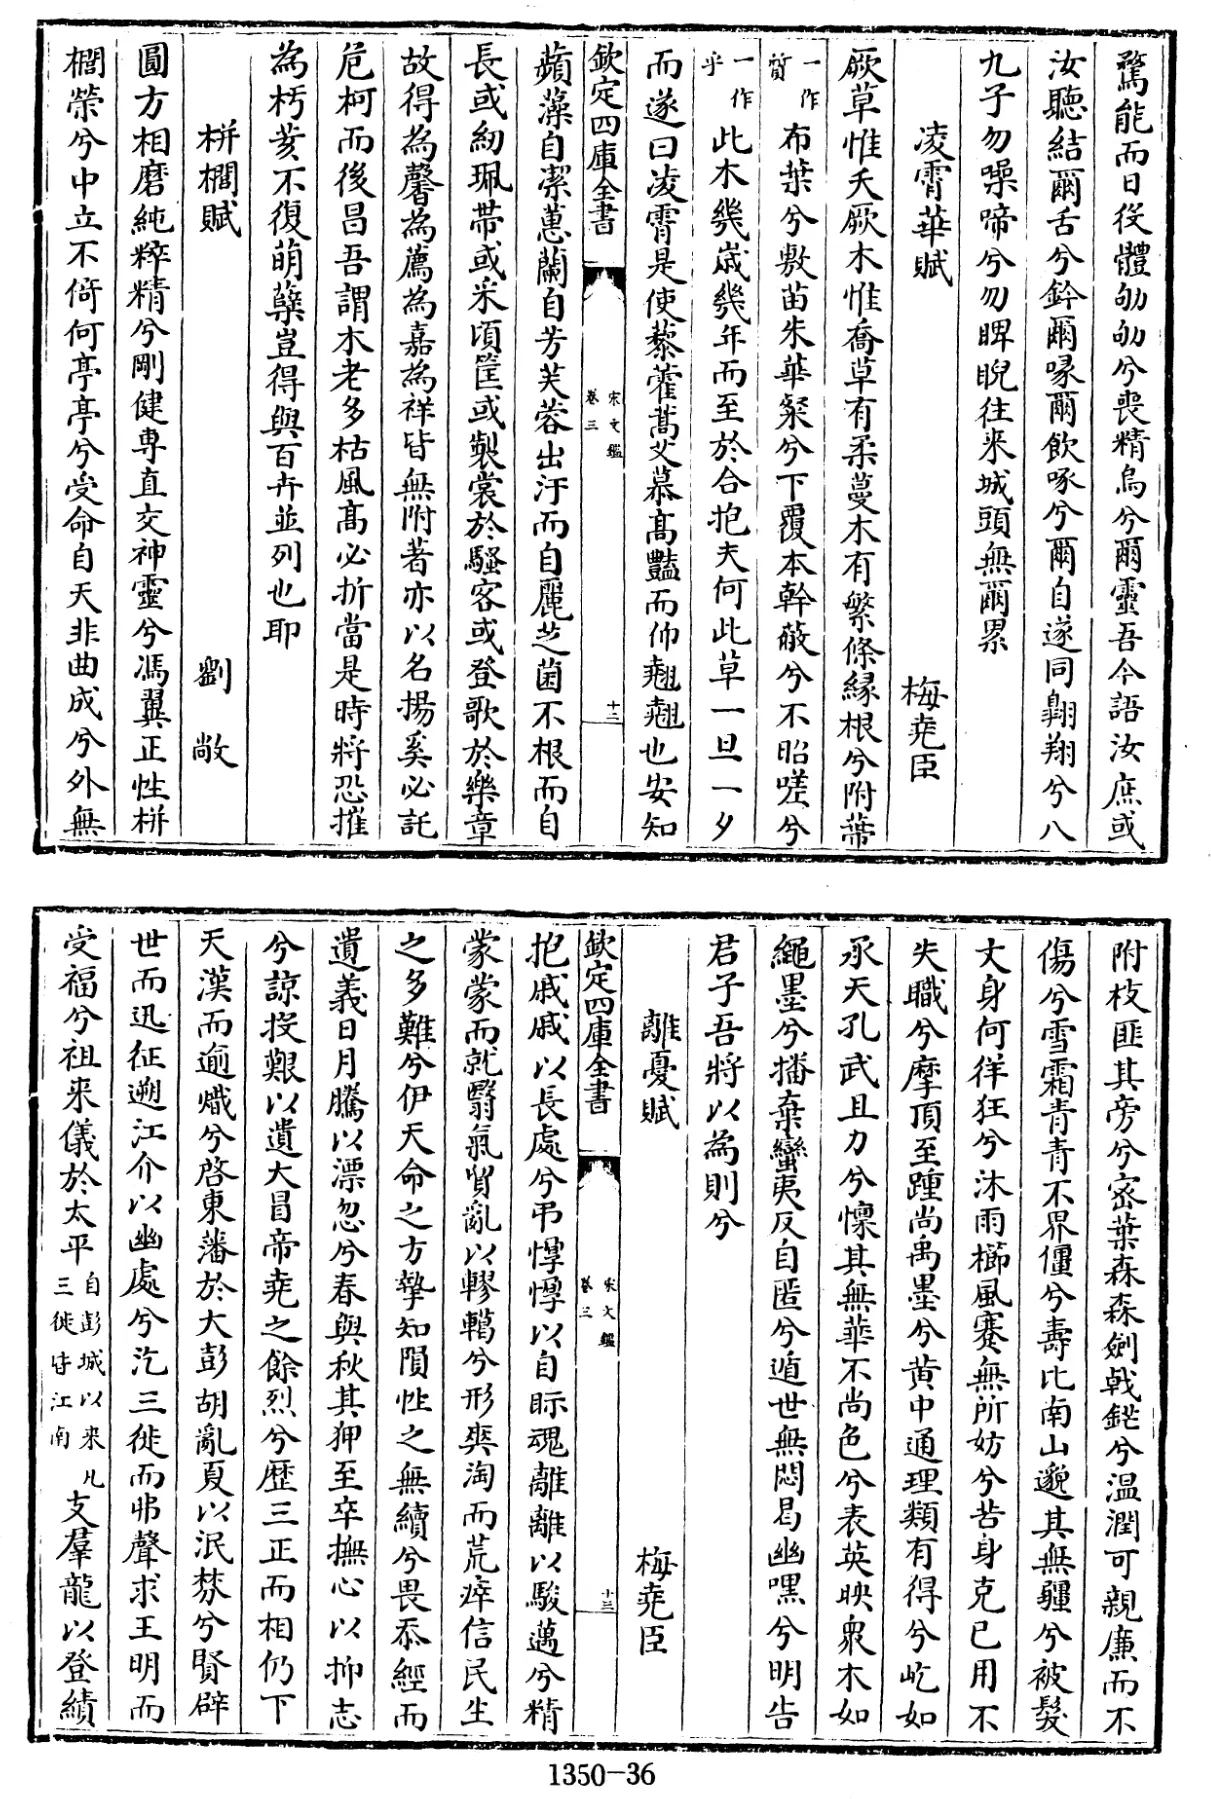 騖能而日役體劬劬兮喪精烏兮爾靈吾今語汝庶或
汝聽結爾舌兮鈐爾喙爾飲啄兮爾自遂同翺翔兮八
九子勿噪啼兮勿睥睨往来城頭無爾累
凌霄華賦 梅堯臣
厥草惟夭厥木惟喬草有柔蔓木有繁條緣根兮附蒂
一作贊布葉兮敷苗朱華粲兮下覆本幹蔽兮不昭嗟兮
一作乎此木幾歲幾年而至於合抱夫何此草一旦一夕
而遂曰凌霄是使藜藿蒿艾慕髙豔而仰翹翹也安知
欽定四庫全書 宋文鑑 卷三 十二
蘋藻自潔蕙蘭自芳芙蓉出汙而自麗芝菌不根而自
長或紉珮帶或采頃筐或製裳於騷客或登歌於樂章
故得為馨為薦為嘉為祥皆無附著亦以名揚奚必託
危柯而後昌吾謂木老多枯風髙必折當是時將恐摧
為朽荄不復萌蘖豈得與百卉並列也耶
栟櫚賦 劉敞
圓方相磨純粹精兮剛健専直交神靈兮馮翼正性栟
櫚榮兮中立不倚何亭亭兮受命自天非曲成兮外無
附枝匪其旁兮宻葉森森劍戟鋩兮温潤可親廉而不
傷兮雪霜青青不畀僵兮壽比南山邈其無疆兮被髮
丈身何徉狂兮沐雨櫛風蹇無所妨兮苦身克已用不
失職兮摩頂至踵尚禹墨兮黄中通理類有得兮屹如
承天孔武且力兮懍其無華不尚色兮表英映衆木如
繩墨兮播棄蠻夷反自匿兮遁世無悶曷幽嘿兮明告
君子吾將以為則兮
離憂賦 梅堯臣
欽定四庫全書 宋文鑑 卷三 十三
抱戚戚以長處兮弔惸惸以自眎魂離離以駿邁兮精
蒙蒙而就翳氣貿亂以轇轕兮形爽淘而荒瘁信民生
之多難兮伊天命之方摯知隕性之無續兮畏忝經而
遺義日月騰以漂忽兮春與秋其狎至卒撫心以抑志
兮諒投艱以遺大昌帝堯之餘烈兮歴三正而相仍下
天漢而逾熾兮啓東藩於大彭胡亂夏以泯棼兮賢辟
世而迅征遡江介以幽處兮汔三徙而弗聲求王明而
受福兮祖来儀於太平自彭城以来凡三徙皆江南支羣龍以登績
1350-36